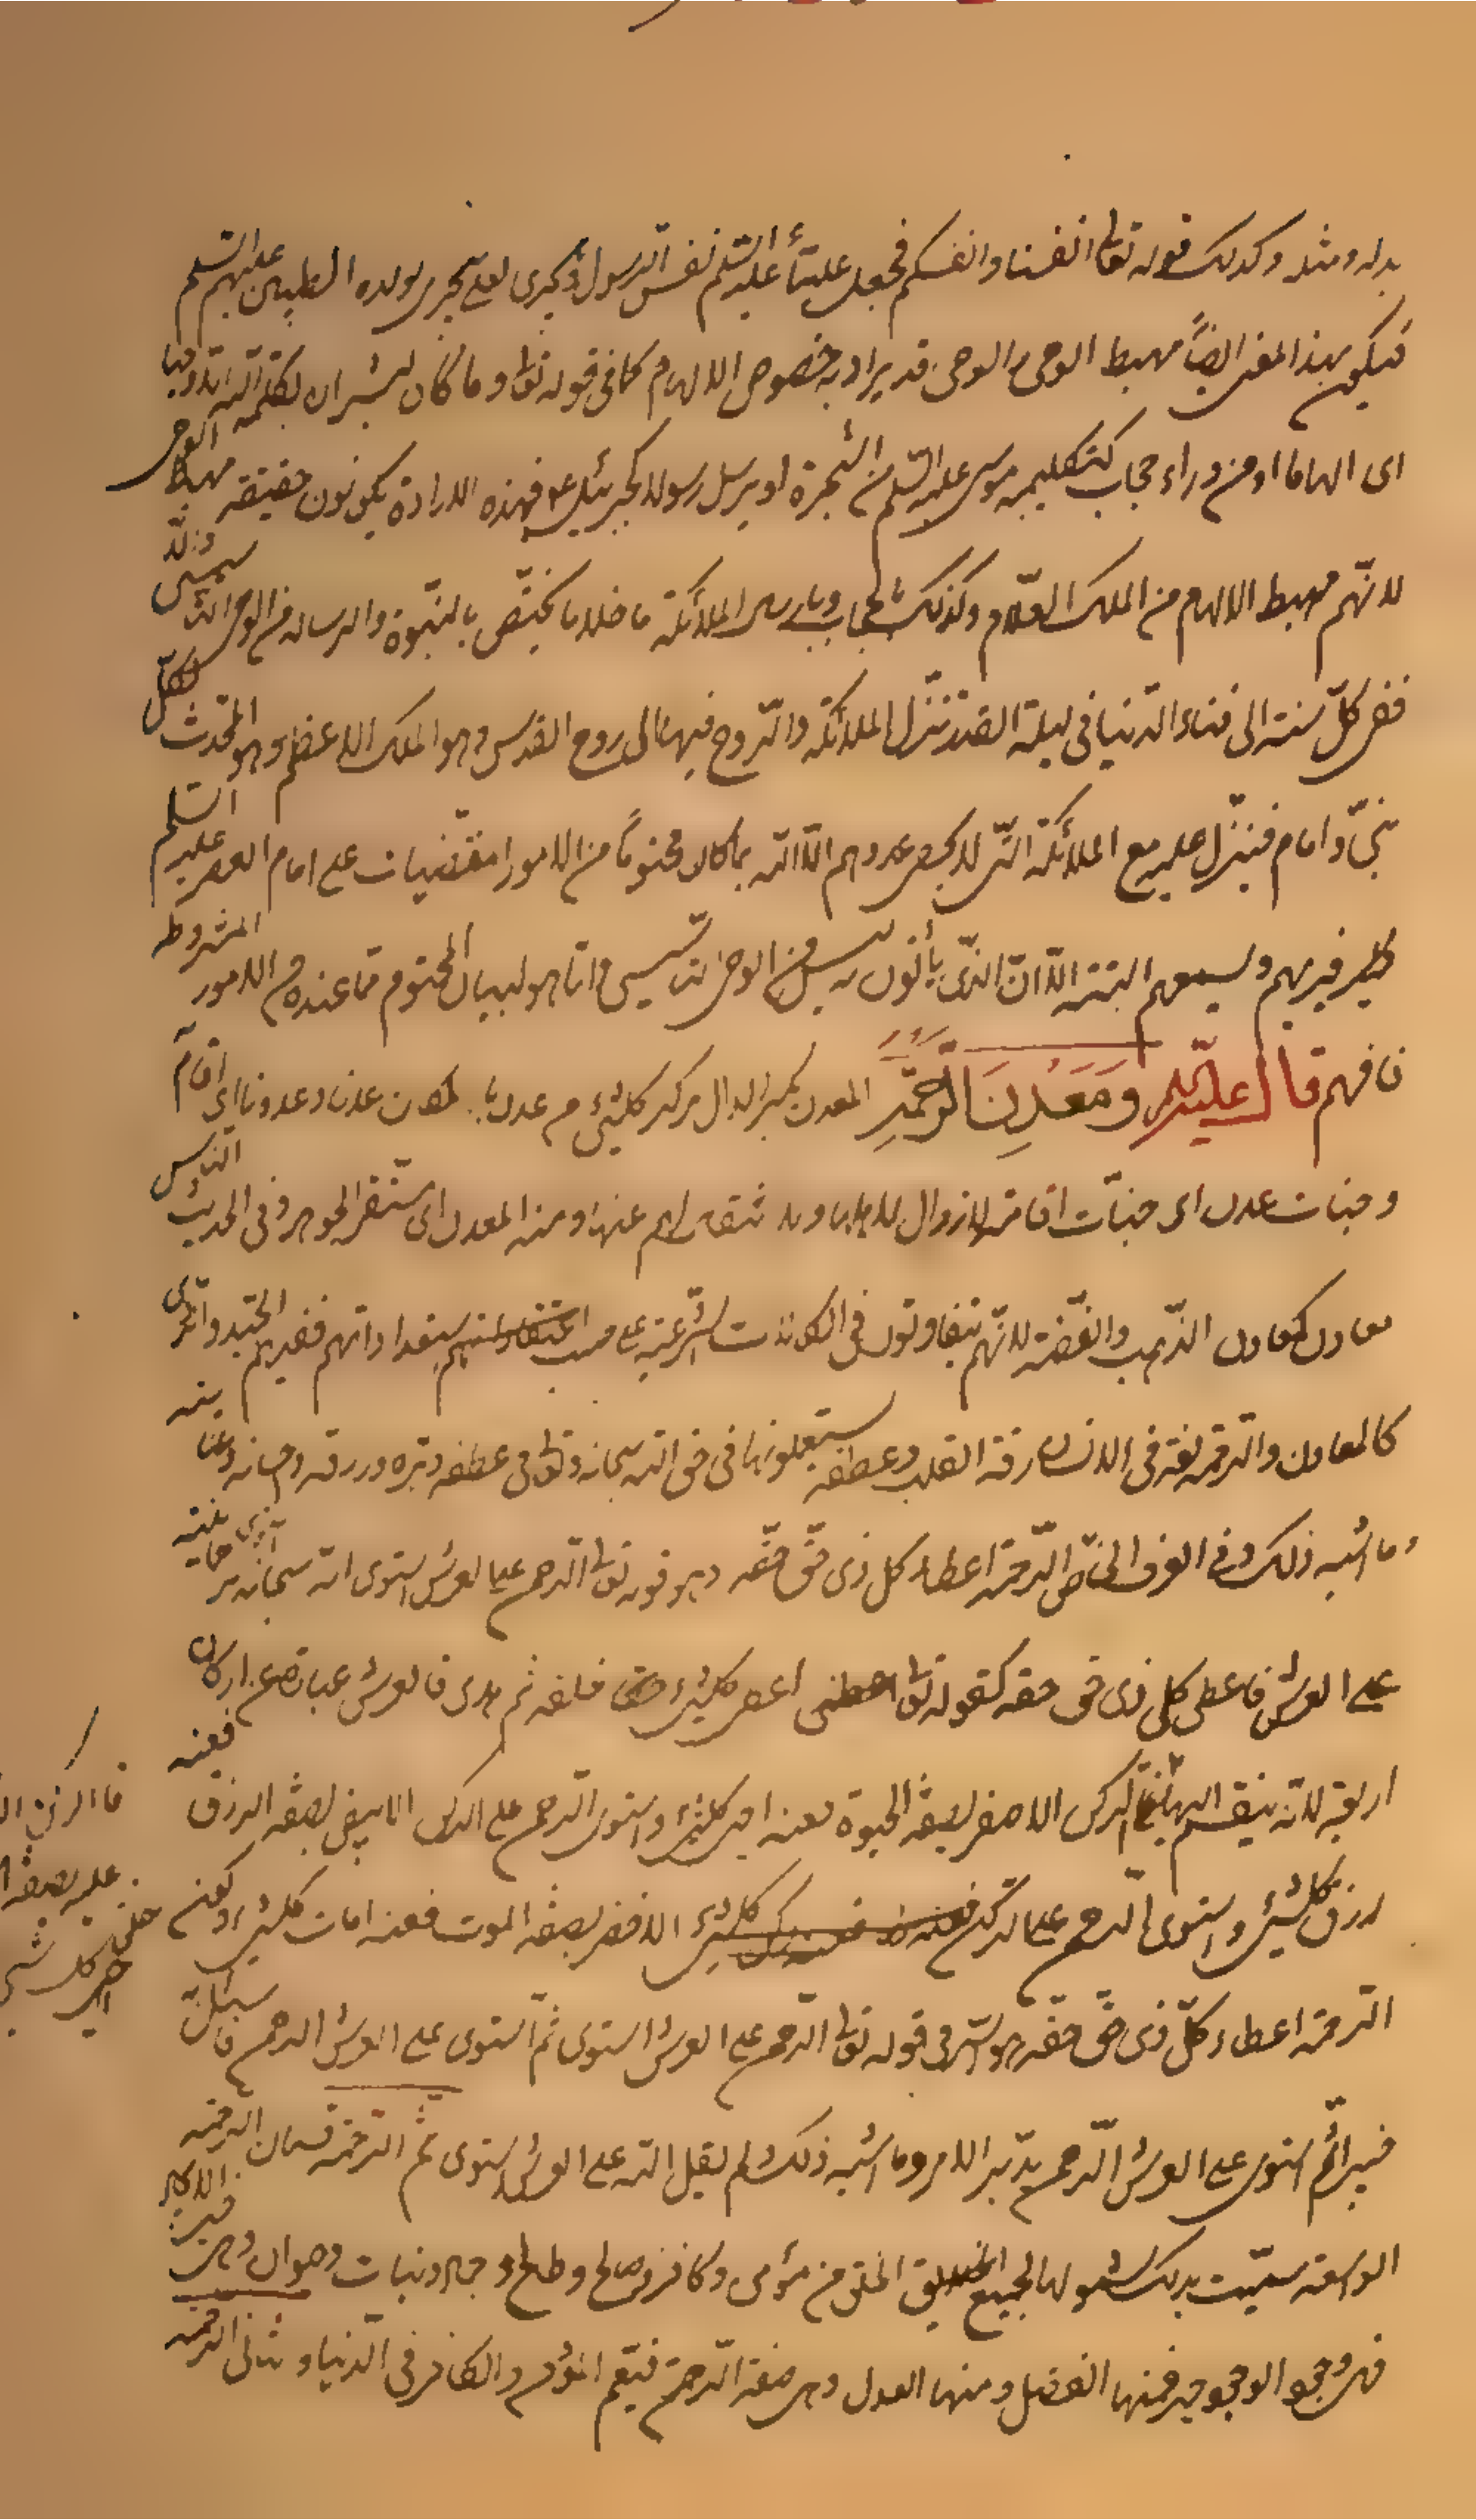 بدله ومثله وكذلك قوله تعا انفسنا وانفسكم فجعل عليّاً عليه السّلم نفس الرسول ويجرى لعلى يجرى لولده الطيبين عليهم السّلم
فيكون بهذا المعنى ايضاً مهبط الوحى والوحى قد يراد به خصوص الالهام كما فى قوله تعا وما كان لبشر ان يكلّمه اللّه الّا وحيا
اى الهاما او من وراء حجاب كتكليمه موسى عليه السّلم من الشّجرة او يرسل رسولا كجبرئيل ع فبهذه الارادة يكونون حقيقة مهبط الوحى
لانّهم مهبط الالهام من الملك العلّام وكذلك بالحجاب وبارسال الملائكة ما خلا ما يختصّ بالنّبوة والرسالة من الوحى التأسيسى ولأنّه
ففى كلّ سنة الى فناء الدّنيا فى ليلة القدر تنزّل الملائكة والرّوح فيها الى روح القدس وهو الملك الاعظم وهو المحدث لكلّ
نبىّ وامام فينزل عليه مع الملائكة التى لا يحصى عددهم الّا اللّه بما كان محتوماً من الامور المقتضيات على امام العصر عليه السّلم
فيهم ويسمعهم البتته الّا انّ الذى يأتون به ليس من الوحى التأسيسى وانّما هو لبيان المحتوم ممّا عنده من الامور المشروطه
فافهم قال عليه السّلم وَمَعْدِنَ الرَّحْمَةِ المعدن بكسر الدال مركز كلّ شىء من عدن بالمكان عدنا وعدونا اى اقام
وجنات عدن اى جنّات اقامة لا زوال لها ولا انتقال لهم عنها ومنه المعدن اى مستقر الجوهر وفى الحديث النّاس
معادن كمعادن الذّهب والفضّة لانّهم يتفاوتون فى الكمالات الشّرعيّة على حسب استعداداتهم ففيهم الجيّد والرّدىّ
كالمعادن والرّحمة لغة فى الانسان رقة القلب وعطفه يستعملونها فى حق اللّه سبحانه وتعا فى عطفه وبرّه ورزقه واحسانه وعنايته
وما اشبه ذلك وفى العرف الخاصّ الرّحمة اعطاء كل ذى حقّ حقّه وهو قوله تعا الرّحمن على العرش استوى انه سبحانه
على العرش فاعطى كل ذى حق حقه كقوله تعا اعطى كلّ شىء خلقه ثم هدى فالعرش عبارة عن اركان
اربعة لانّه ينقسم اليها الركن الاصفر بصفة الحيوة فعنه احيى كلّ شىء واستوى الرّحمن على الركن الابيض بصفة الرزق فعنه
رزق كلّ شىء واستوى الرحمن على الركن الاخضر بصفة الموت فعنه امات كلّ شىء
الرّحمة اعطاء كلّ ذى حقّ حقّه هو السّر فى قوله تعا الرّحمن على العرش استوى ثمّ استوى على العرش الرحمن فاسئل به
خبيرا ثم استوى على العرش الرّحمن يدبّر الامر وما اشبه ذلك ولم يقل اللّه على العرش استوى ثم الرّحمة قسمان الرحمة
الواسعة سمّيت بذلك لشمولها لجميع الخلق من مؤمن وكافر وصالح وطالح وجماد ونبات وحيوان وهى
الوجود فمنها الفضل ومنها العدل وهى صفة الرّحمن فيعم المؤمن والكافر فى الدّنيا وثانى الرّحمة
فالركن
عليه بصفة
خلق كل شىء